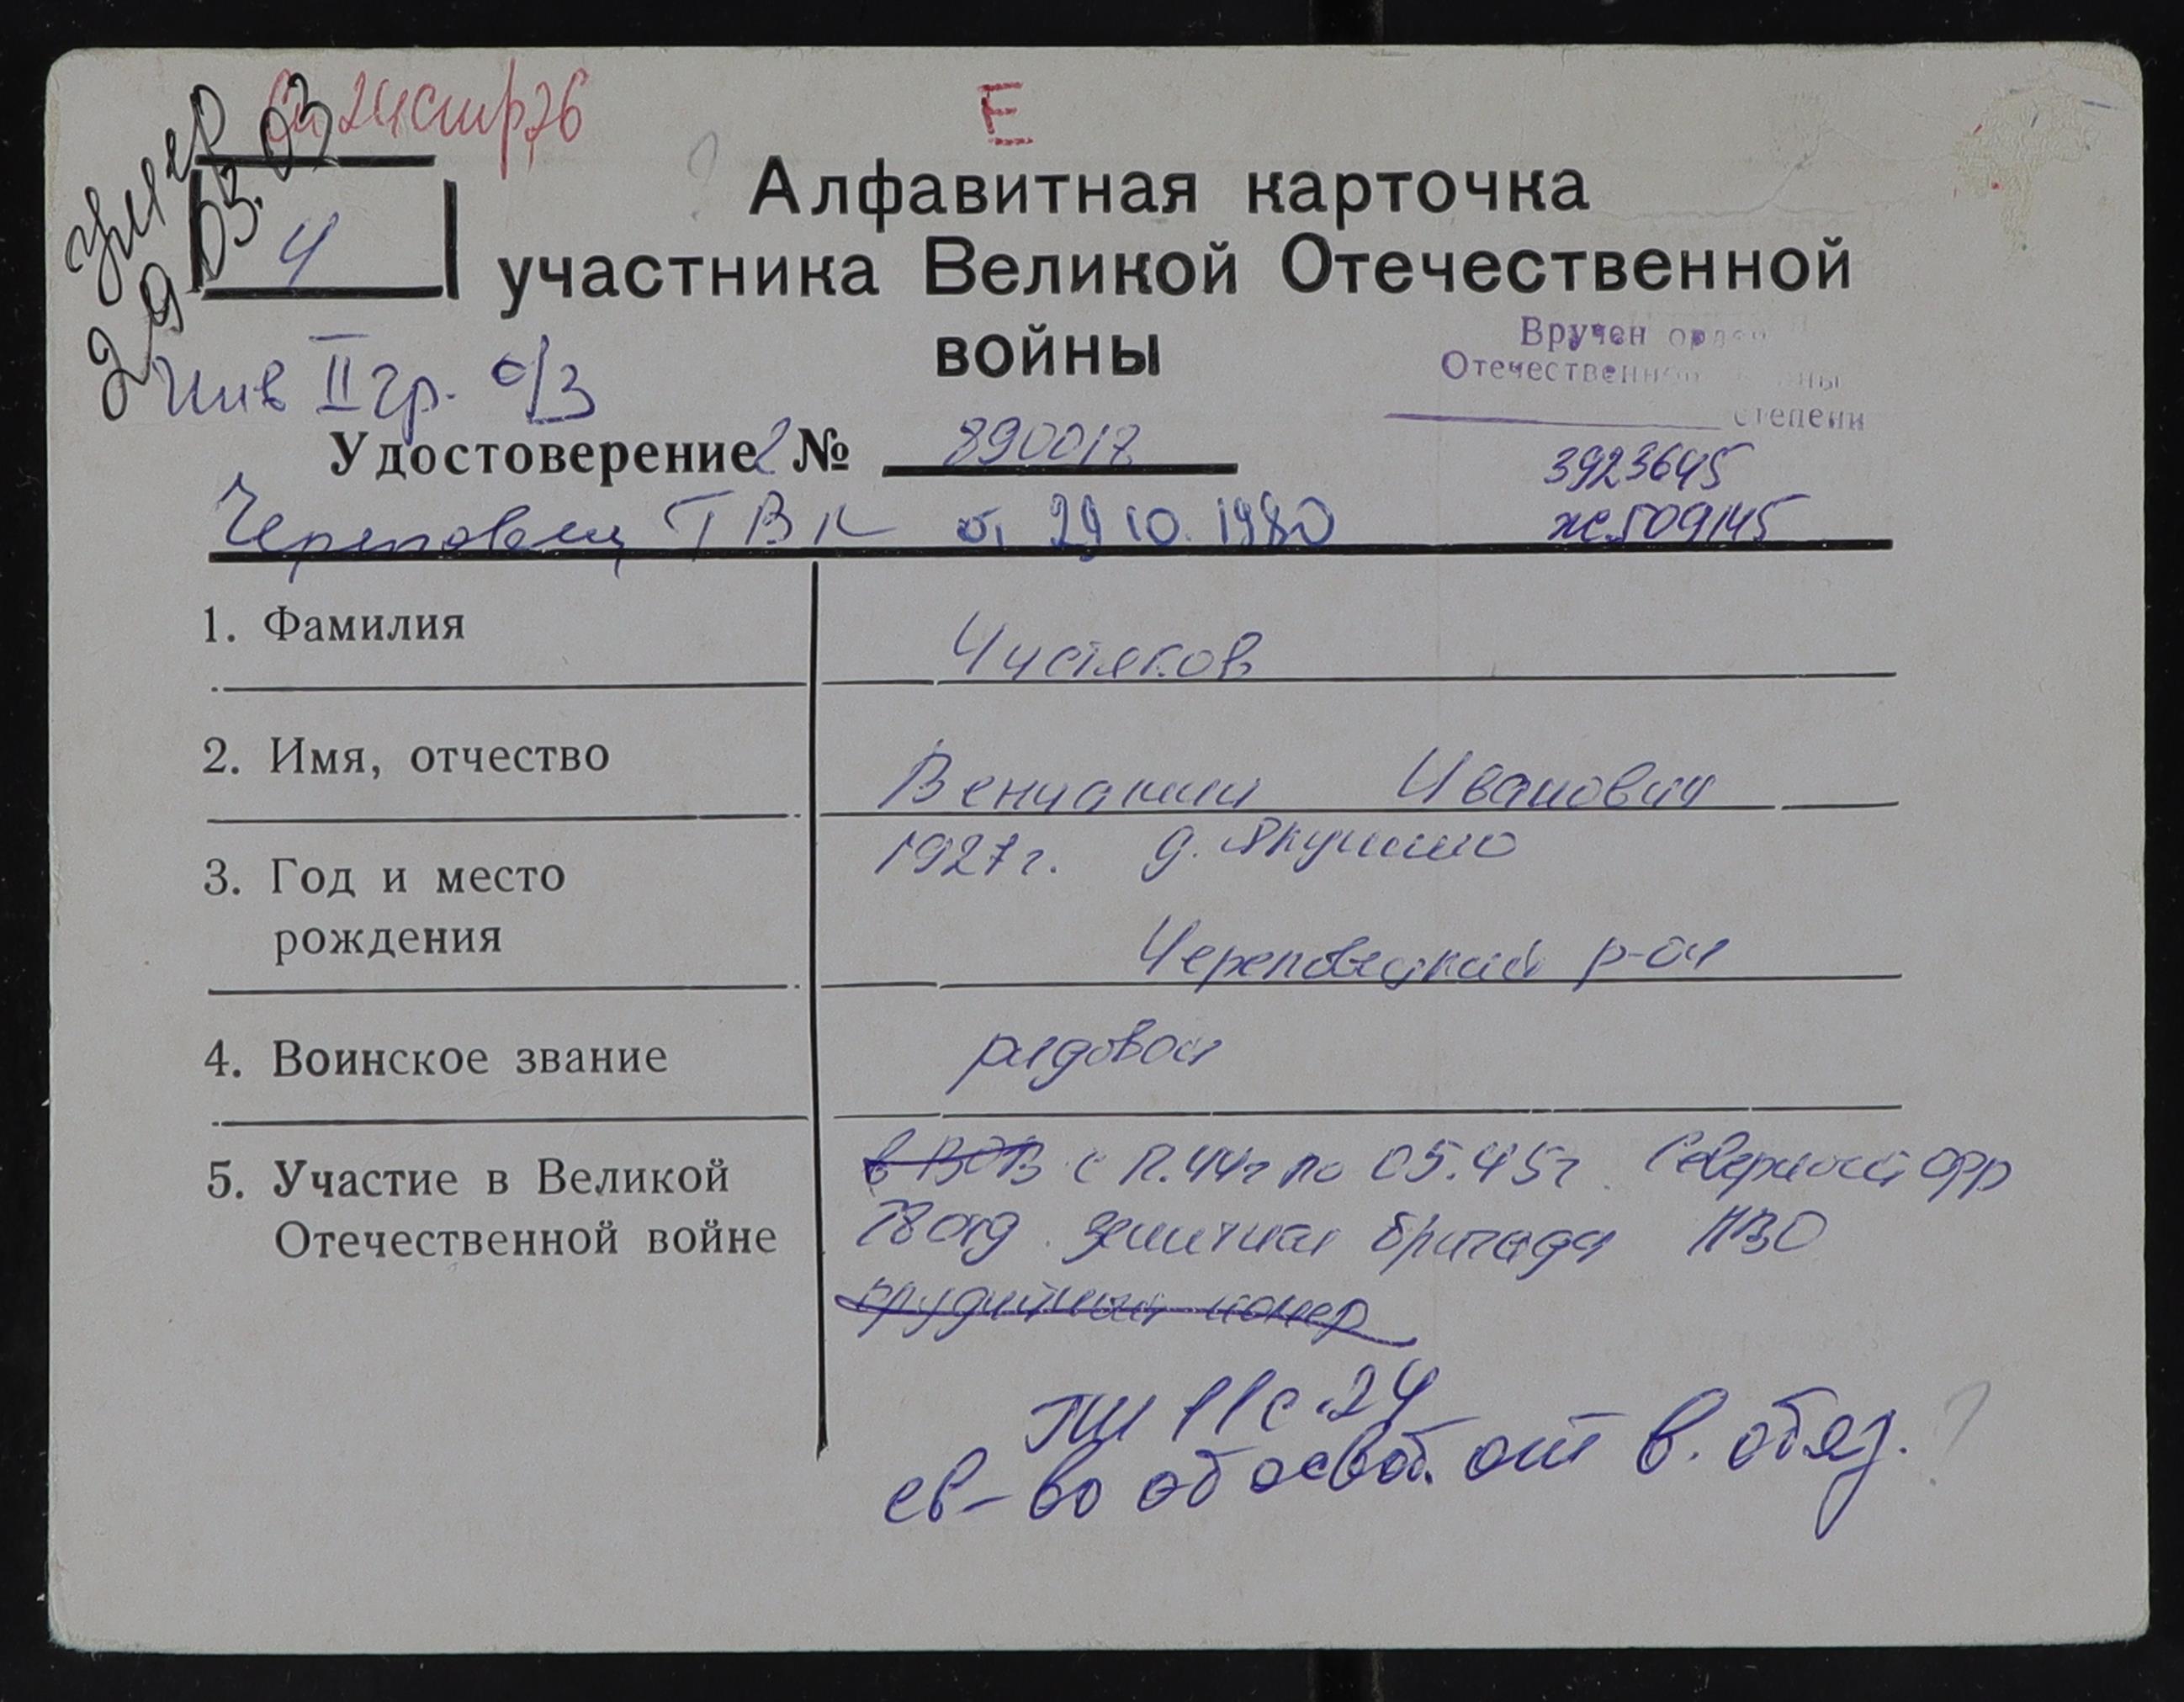 Е
умер
29 03.03
Ч
Алфавитная карточка
участника Великой Отечественной
войны
Вручен орден
Отечественной войны
степени
Инв II гр. о/з
Удостоверение № 890017
3923645
Череповец ГВК от 29 10. 1980
же 509145
1. Фамилия
Чистяков
2. Имя, отчество
Вениамин Иванович
3. Год и место
рождения
1927 г. д. Якунино
Череповецкий р-он
4. Воинское звание
рядовой
5. Участие в Великой
Отечественной войне
в ВОВ с 12.44г по 05.45г. Северный фр
78 отд. зенитная бригада ПВО
орудийный номер
св-во об освоб. от в. обяз.